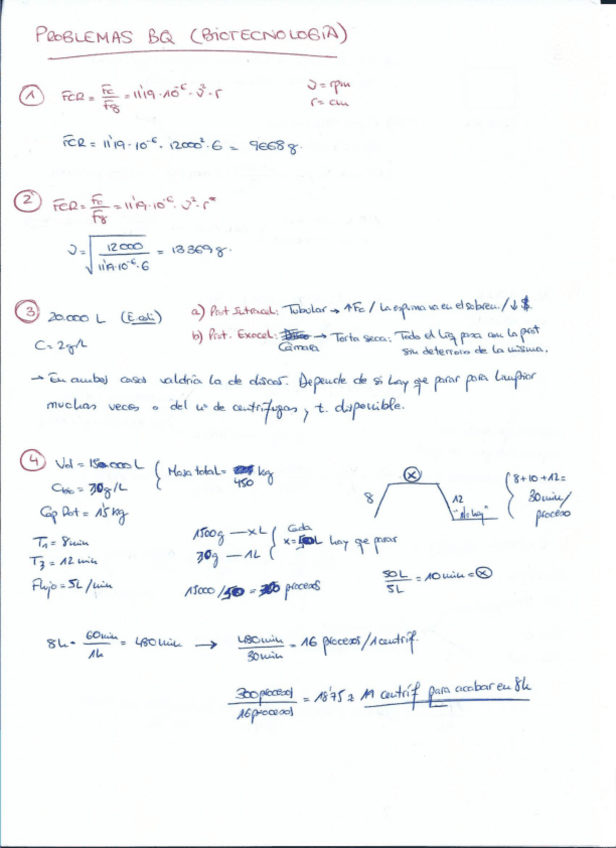 PROBLEMAS BQ (BIOTECNOLOGÍA)
① FCR = Fc/Fg = 11'19·10⁻⁶·ν²·r
ν = rpm
r = cm
FCR = 11'19·10⁻⁶·12000²·6 = 9668g.
② FCR = Fc/Fg = 11'19·10⁻⁶·ν²·r
ν = √(12000/11'19·10⁻⁶·6) = 13369g.
③ 20.000 L (E.coli) a) Prot Intracel: Tubular → ↑Fc / La espuma va en el sobren. / ↓$
C = 2g/L b) Prot. Exocel: Cámara → Torta seca: Todo el liq pasa con la prot
sin deterioro de la misma.
→ En ambos casos valdría la de discos. Depende de si hay que parar para limpiar
muchas veces o del nº de centrífugas, y t. disponible.
④ Vol = 15000L { Masa total = 450 kg
= 30g/L
Cap Rot = 1'5 kg
T₁ = 8min
T₃ = 12 min
Flujo = 5L/min
8 ⓧ 12 "
{ 8+10+12 =
30min/
proceso
1500g — xL { Cada
30g — 1L x = 50L hay que parar
15000/50 = 300 procesos
50L/5L = 10min = ⓧ
8h · 60min/1h = 480min → 480min/30min = 16 procesos/1centríf.
300procesos/16procesos = 18'75 ≈ 19 centríf para acabar en 8h